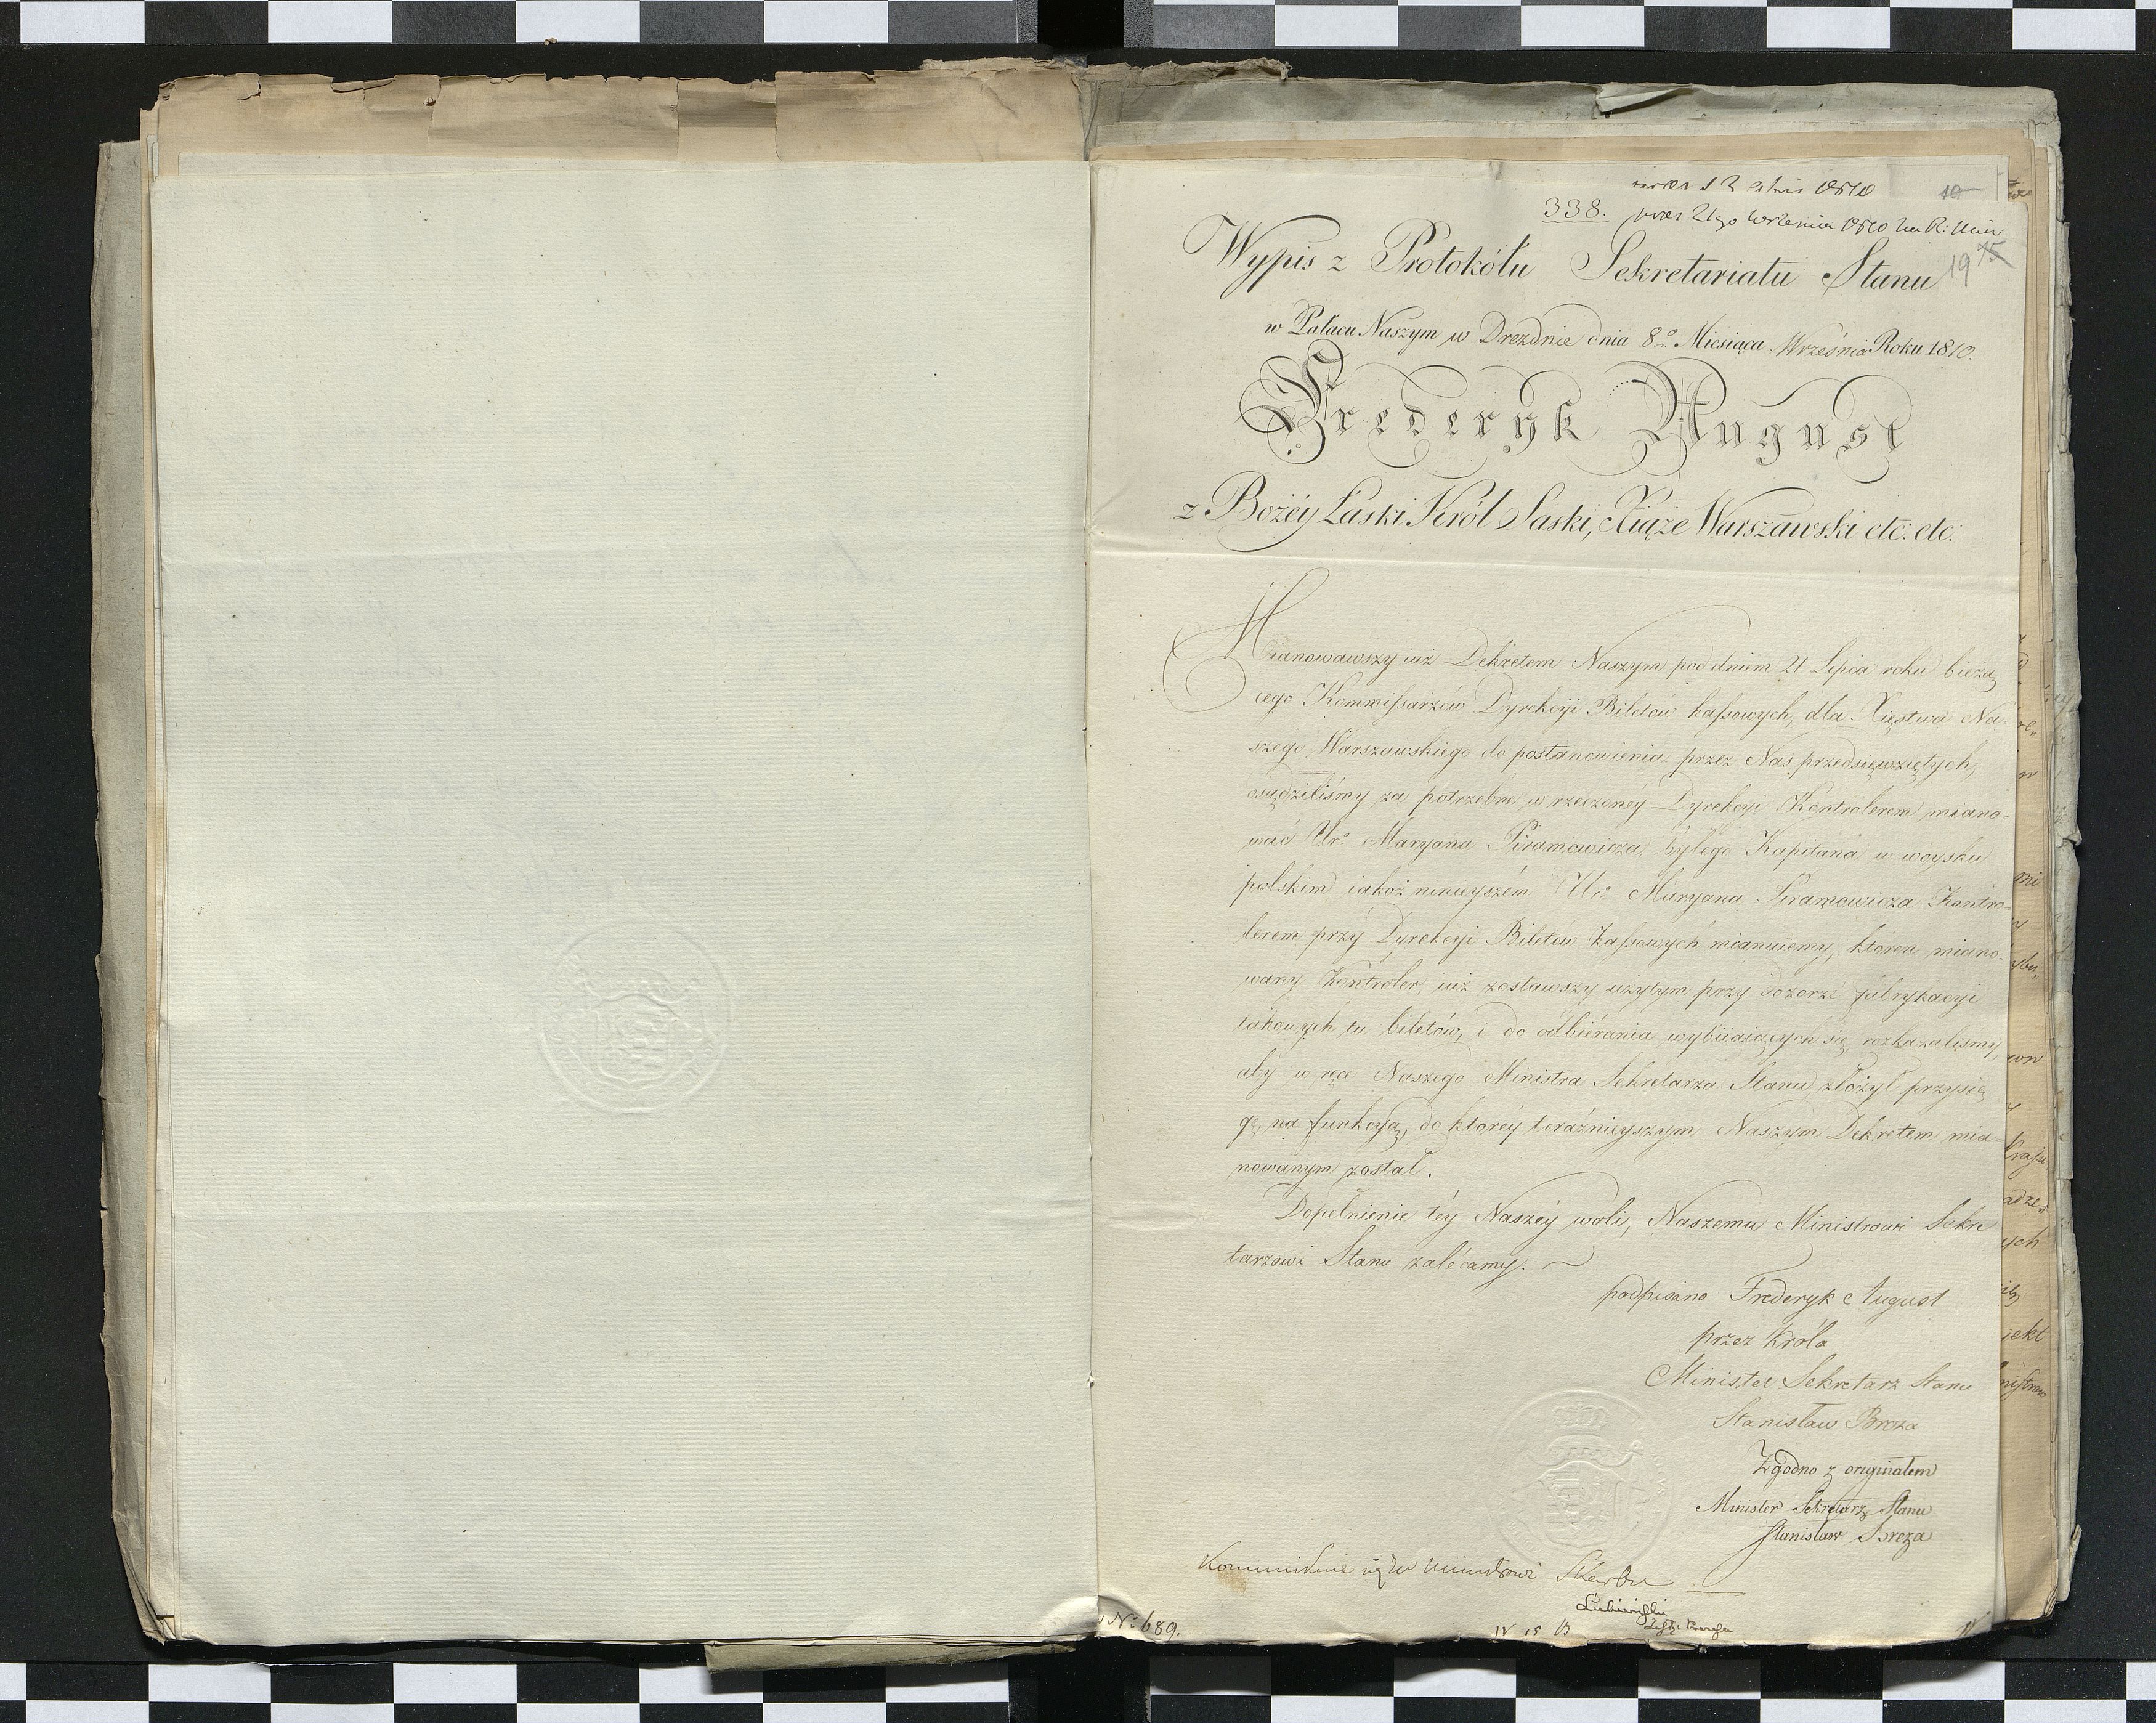 338.
21go września 1810
10
19 15
Wypis z Protokółu Sekretariatu Stanu
w Pałacu Naszym w Dreznie dnia 8o. Miesiąca Września Roku 1810.
Frederyk August
z Bożéy Łaski Król Saski, Xiąże Warszawski etc: etc:
Mianowawszy iuż Dekretem Naszym pod dniem 21 Lipca roku bieżą
cego Kommissarzów Dyrekcyi Biletów kassowych, dla Xięstwa Na-
szego Warszawskiego do postanowienia przez Nas przedsięwziętych,
osądziliśmy za potrzebne w rzeczonéy Dyrekcyi Kontrolerem miano-
wać Uro Maryana Piramowicza, byłego Kapitana w woysku
polskim iakoż ninieyszém Uro Maryana Piramowicza Kontro-
lerem przy Dyrekcyi Biletów kassowych mianuiemy, któren miano-
wany Kontroler, iuż zostawszy użytym przy dozorze fabrykacyi
takowych tu biletów, i do odbiérania wybiiaiących się, rozkazaliśmy,
aby w ręce Naszego Ministra Sekretarza Stanu złożył przysię
gę, na funkcyą, do któréy teraźnieyszym Naszym Dekretem mia-
nowanym został.
Dopełnienie téy Naszéy woli, Naszemu Ministrowi Sekre
tarzowi Stanu zalécamy.
podpisano Frederyk August
przez Króla
Minister Sekretarz Stanu
Stanisław Breza
Zgodno z originałem
Minister Sekretarz Stanu
Stanisław Breza
Ministrowi Skarbu
Łubieński
No 689.